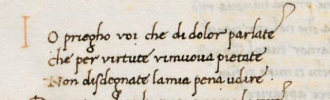 I
O priegho voi che di dolor parlate
che per virtute vi nuova pietate
Non disdegnate la mia pena udire